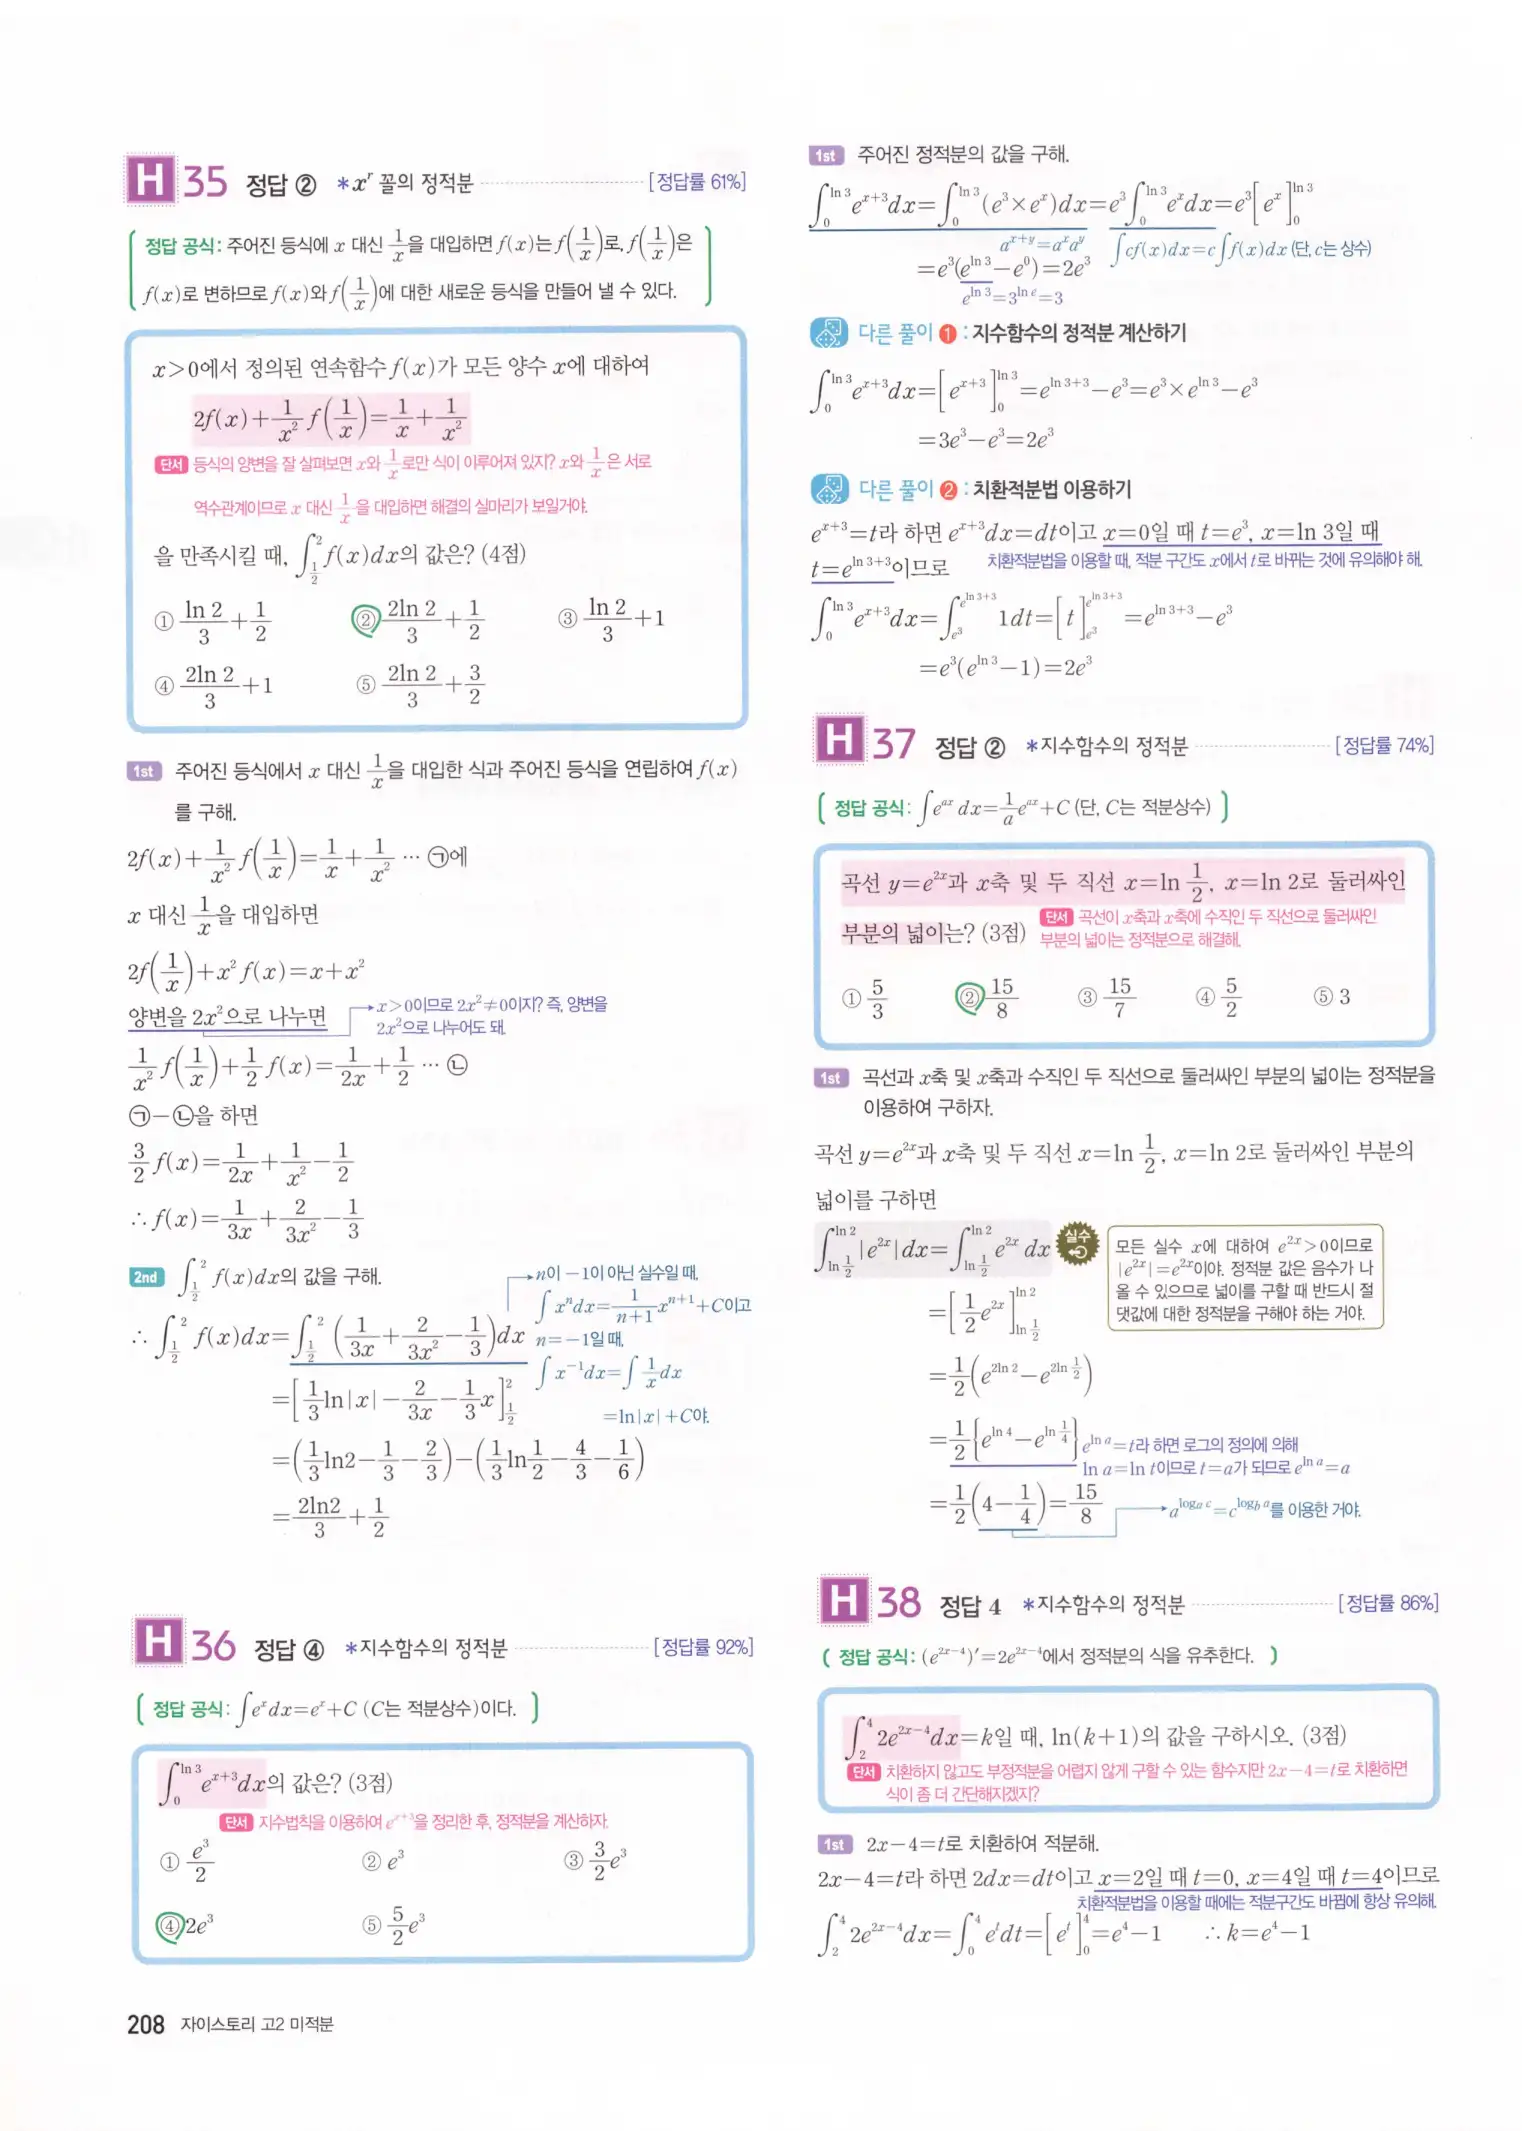 H 35 정답 ② *xʳ 꼴의 정적분 [정답률 61%]
정답 공식: 주어진 등식에 x 대신 1/x을 대입하면 f(x)는 f(1/x)로, f(1/x)은
f(x)로 변하므로 f(x)와 f(1/x)에 대한 새로운 등식을 만들어 낼 수 있다.
x>0에서 정의된 연속함수 f(x)가 모든 양수 x에 대하여
2f(x)+1/x² f(1/x)=1/x+1/x²
단서 등식의 양변을 잘 살펴보면 x와 1/x로만 식이 이루어져 있지? x와 1/x은 서로
역수관계이므로 x 대신 1/x을 대입하면 해결의 실마리가 보일거야.
을 만족시킬 때, ∫_{1/2}^{2} f(x)dx의 값은? (4점)
① ln 2/3+1/2 ② 2ln 2/3+1/2 ③ ln 2/3+1
④ 2ln 2/3+1 ⑤ 2ln 2/3+3/2
1st 주어진 등식에서 x 대신 1/x을 대입한 식과 주어진 등식을 연립하여 f(x)
를 구해.
2f(x)+1/x² f(1/x)=1/x+1/x² … ㉠에
x 대신 1/x을 대입하면
2f(1/x)+x²f(x)=x+x²
양변을 2x²으로 나누면
x>0이므로 2x²≠0이지? 즉, 양변을
2x²으로 나누어도 돼.
1/x² f(1/x)+1/2 f(x)=1/2x+1/2 … ㉡
㉠-㉡을 하면
3/2 f(x)=1/2x+1/x²-1/2
∴ f(x)=1/3x+2/3x²-1/3
2nd ∫_{1/2}^{2} f(x)dx의 값을 구해.
n이 -1이 아닌 실수일 때,
∫xⁿdx=1/(n+1) xⁿ⁺¹+C이고
∴ ∫_{1/2}^{2} f(x)dx=∫_{1/2}^{2} (1/3x+2/3x²-1/3)dx
n=-1일 때,
∫x⁻¹dx=∫1/x dx
=ln|x|+C야.
=[1/3 ln|x|-2/3x-1/3 x]_{1/2}^{2}
=(1/3 ln2-1/3-2/3)-(1/3 ln 1/2-4/3-1/6)
=2ln2/3+1/2
H 36 정답 ④ *지수함수의 정적분 [정답률 92%]
정답 공식: ∫eˣdx=eˣ+C (C는 적분상수)이다.
∫_{0}^{ln 3} e^{x+3}dx의 값은? (3점)
단서 지수법칙을 이용하여 e^{x+3}을 정리한 후, 정적분을 계산하자.
① e³/2 ② e³ ③ 3/2 e³
④ 2e³ ⑤ 5/2 e³
208 자이스토리 고2 미적분
1st 주어진 정적분의 값을 구해.
∫_{0}^{ln 3} e^{x+3}dx=∫_{0}^{ln 3} (e³×eˣ)dx=e³∫_{0}^{ln 3} eˣdx=e³[eˣ]_{0}^{ln 3}
a^{x+y}=aˣaʸ ∫cf(x)dx=c∫f(x)dx (단, c는 상수)
=e³(e^{ln 3}-e⁰)=2e³
e^{ln 3}=3^{ln e}=3
다른 풀이 ❶ : 지수함수의 정적분 계산하기
∫_{0}^{ln 3} e^{x+3}dx=[e^{x+3}]_{0}^{ln 3}=e^{ln 3+3}-e³=e³×e^{ln 3}-e³
=3e³-e³=2e³
다른 풀이 ❷ : 치환적분법 이용하기
e^{x+3}=t라 하면 e^{x+3}dx=dt이고 x=0일 때 t=e³, x=ln 3일 때
t=e^{ln 3+3}이므로
치환적분법을 이용할 때, 적분 구간도 x에서 t로 바뀌는 것에 유의해야 해.
∫_{0}^{ln 3} e^{x+3}dx=∫_{e³}^{e^{ln 3+3}} 1dt=[t]_{e³}^{e^{ln 3+3}}=e^{ln 3+3}-e³
=e³(e^{ln 3}-1)=2e³
H 37 정답 ② *지수함수의 정적분 [정답률 74%]
정답 공식: ∫e^{ax} dx=1/a e^{ax}+C (단, C는 적분상수)
곡선 y=e^{2x}과 x축 및 두 직선 x=ln 1/2, x=ln 2로 둘러싸인
부분의 넓이는? (3점)
단서 곡선이 x축과 x축에 수직인 두 직선으로 둘러싸인
부분의 넓이는 정적분으로 해결해.
① 5/3 ② 15/8 ③ 15/7 ④ 5/2 ⑤ 3
1st 곡선과 x축 및 x축과 수직인 두 직선으로 둘러싸인 부분의 넓이는 정적분을
이용하여 구하자.
곡선 y=e^{2x}과 x축 및 두 직선 x=ln 1/2, x=ln 2로 둘러싸인 부분의
넓이를 구하면
∫_{ln 1/2}^{ln 2} |e^{2x}|dx=∫_{ln 1/2}^{ln 2} e^{2x} dx
실수
모든 실수 x에 대하여 e^{2x}>0이므로
|e^{2x}|=e^{2x}이야. 정적분 값은 음수가 나
올 수 있으므로 넓이를 구할 때 반드시 절
댓값에 대한 정적분을 구해야 하는 거야.
=[1/2 e^{2x}]_{ln 1/2}^{ln 2}
=1/2(e^{2ln 2}-e^{2ln 1/2})
=1/2{e^{ln 4}-e^{ln 1/4}}
e^{ln a}=t라 하면 로그의 정의에 의해
ln a=ln t이므로 t=a가 되므로 e^{ln a}=a
=1/2(4-1/4)=15/8
a^{log_b c}=c^{log_b a}를 이용한 거야.
H 38 정답 4 *지수함수의 정적분 [정답률 86%]
정답 공식: (e^{2x-4})′=2e^{2x-4}에서 정적분의 식을 유추한다.
∫_{2}^{4} 2e^{2x-4}dx=k일 때, ln(k+1)의 값을 구하시오. (3점)
단서 치환하지 않고도 부정적분을 어렵지 않게 구할 수 있는 함수지만 2x-4=t로 치환하면
식이 좀 더 간단해지겠지?
1st 2x-4=t로 치환하여 적분해.
2x-4=t라 하면 2dx=dt이고 x=2일 때 t=0, x=4일 때 t=4이므로
치환적분법을 이용할 때에는 적분구간도 바뀜에 항상 유의해.
∫_{2}^{4} 2e^{2x-4}dx=∫_{0}^{4} eᵗdt=[eᵗ]_{0}^{4}=e⁴-1 ∴ k=e⁴-1